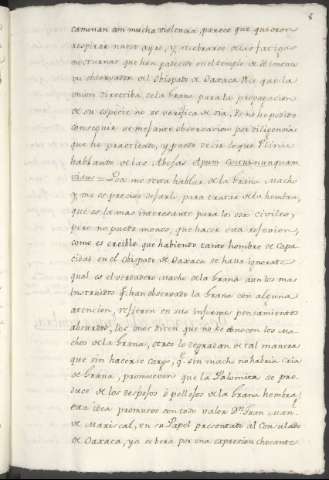 8
caminan con mucha violencia, parece que quieren
respirar nuevo ayre, y recobrarse de las fatigas
nocturnas que han padecido en el
un observador del Obispado de Oaxaca dice que la
union directiba de la brana para la propagacion
de su especie no se verifica de dia, Yo no he podido
conseguir semejante observacion por diligencias
que he practicado, y puedo decir lo que Plinio
hablando de las Abejas Apum Coitus nunquam
visus = Ya me restta hablar de la brana Macho
y me es preciso dejarla para tratar de la hembra,
que es la mas interesante para los usos civiles;
pero no puedo menos, que hacer esta reflexion,
como es creible que habiendo tanto hombre de Capa
cidad en el Obispado de Oaxaca se halla ignorado
qual es el verdadero Macho de la brana aun los mas
instruidos q.e han observado la brana con alguna
atencion, refieren en sus informes pensamientos
absurdos, los unos dicen que no se conocen los Ma
chos de la brana, otros lo degradan de tal manera
que sin hacerse cargo, q.e sin macho no habria cria
de brana, promueven que la Palomita se pro
duce de los despojos ó pellejos de la brana hembra,
esta idea promueve con todo valor D.n Juan Man.l
de Mariscal, en su Papel presentado al Consulado
de Oaxaca, ya se berá por una exprecion chocante